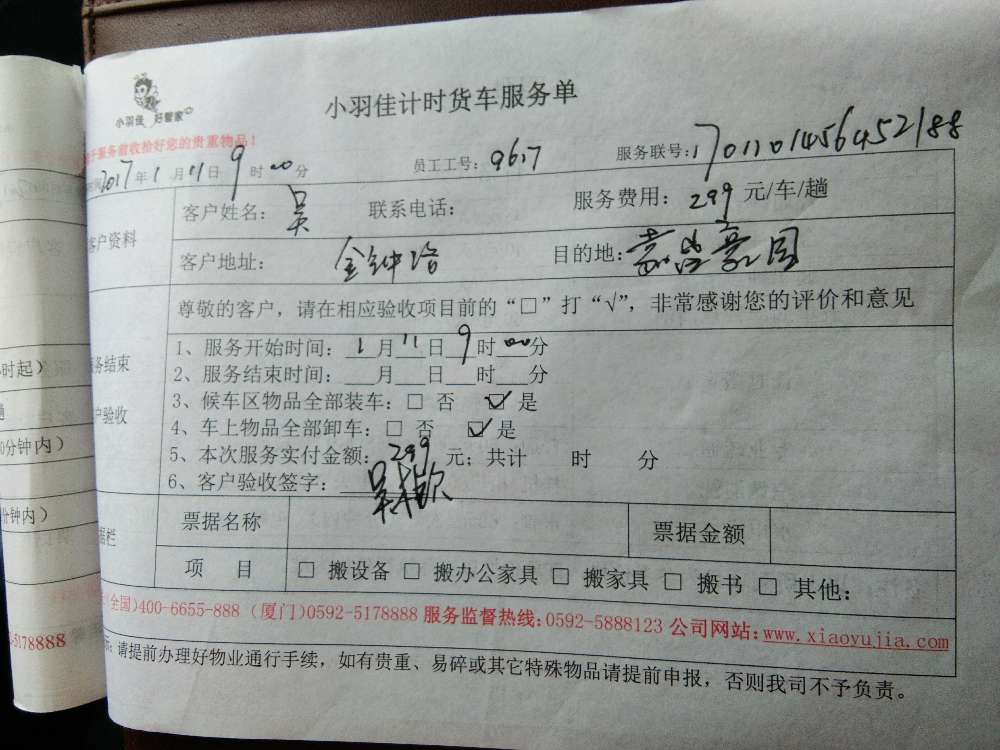 小羽佳 好管家
小羽佳计时货车服务单
服务前收拾好您的贵重物品！
2017年1月11日9时00分 员工工号：9617 服务联号：170110145645​2188
客户资料
客户姓名：吴 联系电话： 服务费用：299元/车/趟
客户地址：金钟路 目的地：嘉盛豪园
尊敬的客户，请在相应验收项目前的“□”打“√”，非常感谢您的评价和意见
务结束
户验收
1、服务开始时间：1月11日9时00分
2、服务结束时间：___月___日___时___分
3、候车区物品全部装车：□ 否 ☑ 是
4、车上物品全部卸车：□ 否 ☑ 是
5、本次服务实付金额：299元；共计 时 分
6、客户验收签字：吴
据栏
票据名称 票据金额
项 目 □ 搬设备 □ 搬办公家具 □ 搬家具 □ 搬书 □ 其他：
(全国)400-6655-888 (厦门)0592-5178888 服务监督热线:0592-5888123 公司网站:www.xiaoyujia.com
请提前办理好物业通行手续，如有贵重、易碎或其它特殊物品请提前申报，否则我司不予负责。
时起）
0分钟内）
分钟内）
5178888